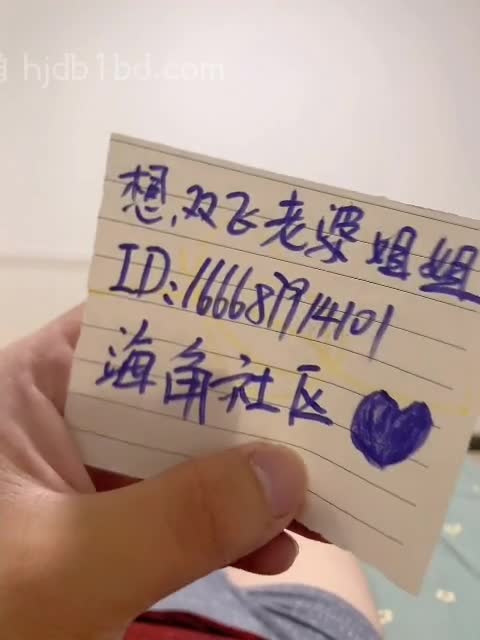 hjdb1bd.com
想,双飞老婆姐姐
ID:166687914101
海角社区